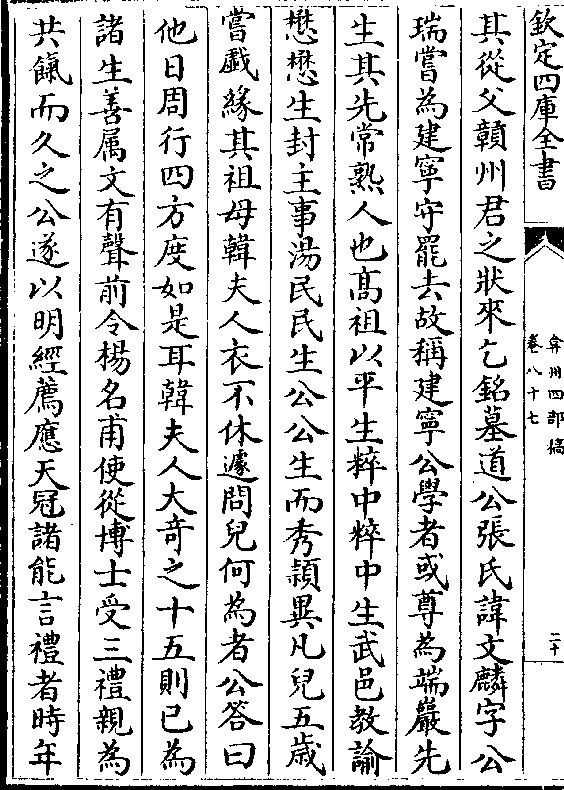 欽定四庫全書
弇州四部稿
卷八十七
二十
其從父贛州君之狀來乞銘墓道公張氏諱文麟字公
瑞嘗為建寧守罷去故稱建寧公學者或尊為端巖先
生其先常熟人也髙祖以平生粹中粹中生武邑教諭
懋懋生封主事湯民民生公公生而秀穎異凡兒五歳
嘗戱緣其祖母韓夫人衣不休遽問兒何為者公答曰
他日周行四方度如是耳韓夫人大奇之十五則已為
諸生善属文有聲前令楊名甫使從博士受三禮親為
共餼而久之公遂以明經薦應天冠諸能言禮者時年